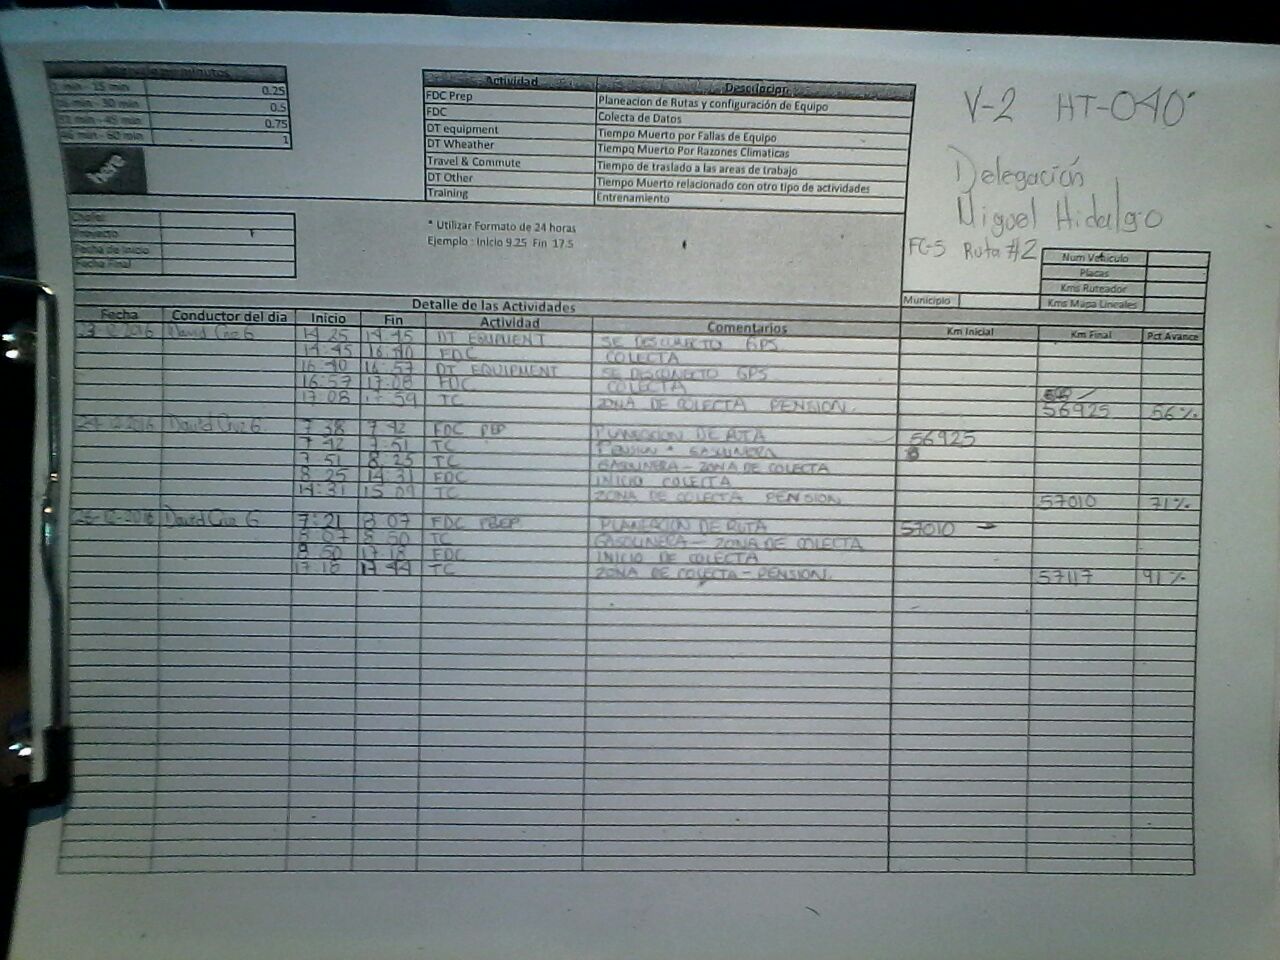 minutos
min - 15 min 0.25
min - 30 min 0.5
min - 45 min 0.75
min - 60 min 1
here
Actividad Descripcion
FDC Prep Planeacion de Rutas y configuración de Equipo
FDC Colecta de Datos
DT equipment Tiempo Muerto por Fallas de Equipo
DT Wheather Tiempo Muerto Por Razones Climaticas
Travel & Commute Tiempo de traslado a las areas de trabajo
DT Other Tiempo Muerto relacionado con otro tipo de actividades
Training Entrenamiento
V-2 HT-040
Delegación
Miguel Hidalgo
FC-5 Ruta #2
Chofer
Proyecto
Fecha de Inicio
Fecha Final
* Utilizar Formato de 24 horas
Ejemplo : Inicio 9.25 Fin 17.5
Num Vehiculo
Placas
Kms Ruteador
Municipio Kms Mapa Lineales
Detalle de las Actividades
Fecha Conductor del dia Inicio Fin Actividad Comentarios Km Inicial Km Final Pct Avance
David Cruz G. 14 25 14 45 DT EQUIPMENT SE DESCONECTO GPS
14:45 16:40 FDC COLECTA
16 40 16 57 DT EQUIPMENT SE DESCONECTO GPS
16:57 17:08 FDC COLECTA
17:08 17 59 TC ZONA DE COLECTA PENSION. 56925 56%
David Cruz G. 7 38 7 42 FDC PEP PLANEACION DE RUTA 56925
7 42 7 51 TC PENSION GASOLINERA
7 51 8 25 TC GASOLINERA - ZONA DE COLECTA
8 25 14 31 FDC INICIO COLECTA
14:31 15 09 TC ZONA DE COLECTA PENSION 57010 71%
David Cruz G 7:21 8 07 FDC PREP PLANEACION DE RUTA 57010
8 07 8 50 TC GASOLINERA - ZONA DE COLECTA
8 50 17 18 FDC INICIO DE COLECTA
17 18 17 44 TC ZONA DE COLECTA - PENSION. 57117 91%